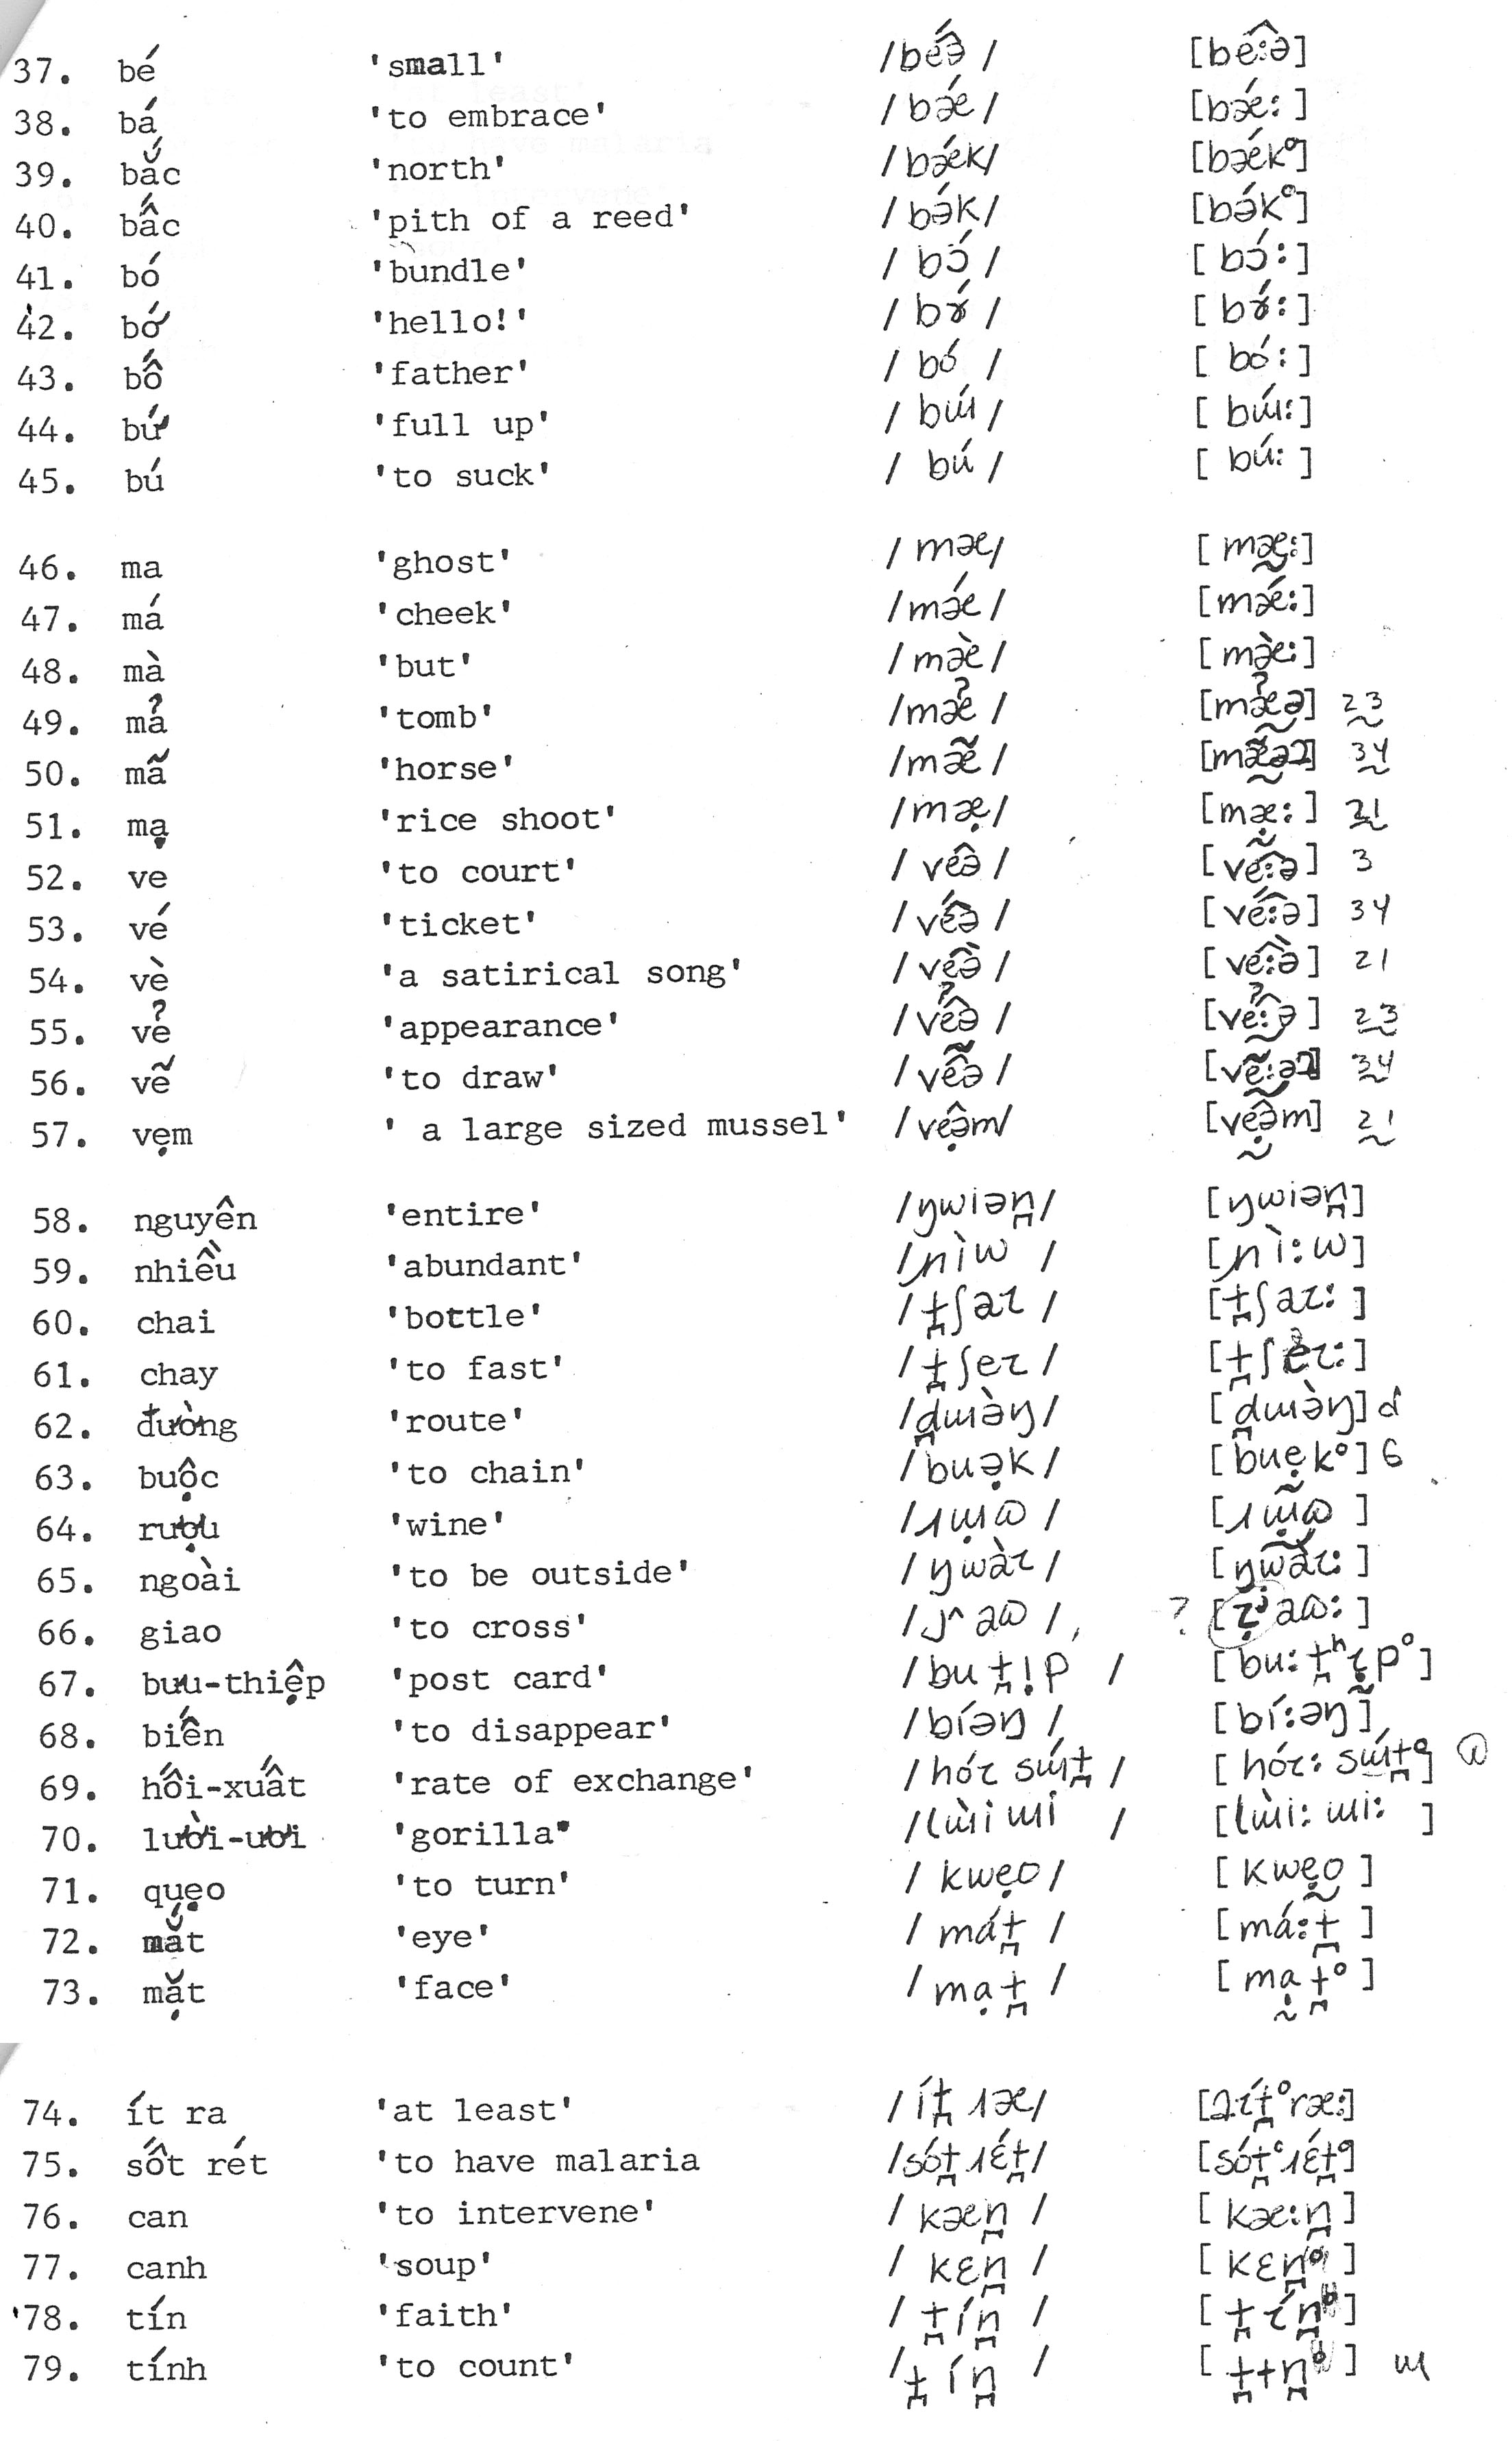 37. bé 'small' /béə̂/ [bé:ə̂]
38. bá 'to embrace' /bǽ/ [bǽ:]
39. bắc 'north' /bǽk/ [bǽk°]
40. bấc 'pith of a reed' /bə́k/ [bə́k°]
41. bó 'bundle' /bɔ́/ [bɔ́:]
42. bớ 'hello!' /bɤ́/ [bɤ́:]
43. bố 'father' /bó/ [bó:]
44. bứ 'full up' /bɯ́/ [bɯ́:]
45. bú 'to suck' /bú/ [bú:]
46. ma 'ghost' /mæ/ [mæ̰:]
47. má 'cheek' /mǽ/ [mǽ:]
48. mà 'but' /mæ̀/ [mæ̀:]
49. mả 'tomb' /mæ̉/ [mæ̉ə̰] 23
50. mã 'horse' /mæ̃/ 34
51. mạ 'rice shoot' /mæ̣/ [mæ̣̰:] 21
52. ve 'to court' /veə̂/ [ve:ə̂] 3
53. vé 'ticket' /véə̂/ [vé:ə̂] 34
54. vè 'a satirical song' /vèə̂/ [vè:ə̂] 21
55. vẻ 'appearance' /vẻə̂/ [vẻ:ə̰̂] 23
56. vẽ 'to draw' /vẽə̂/ 34
57. vẹm ' a large sized mussel' /vẹə̂m/ [vẹ̰ə̂m] 21
58. nguyên 'entire' /ŋwiən̪/ [ŋwiən̪]
59. nhiều 'abundant' /ɲìw/ [ɲì:w]
60. chai 'bottle' /t̪ʃaɪ/ [t̪ʃaɪ:]
61. chay 'to fast' /t̪ʃeɪ/ [t̪ʃeɪ:]
62. đường 'route' /d̪ɯə̀ŋ/ [d̪ɯə̀ŋ] ɗ
63. buộc 'to chain' /buə̣k/ [buẹk°] ɓ
64. rượu 'wine' /ɹɯ̣ɷ/ [ɹɯ̣̃ɷ]
65. ngoài 'to be outside' /ŋwàɪ/ [ŋwàɪ:]
66. giao 'to cross' /aɷ/, ? [aɷ:]
67. bưu-thiệp 'post card' /but̪ịp/ [bu:t̪ʰɪ̣p°]
68. biến 'to disappear' /bíəŋ/ [bí:əŋ]
69. hối-xuất 'rate of exchange' /hóɪ sɯ́t̪/ [hóɪ: sɯ́t̪°] ɷ
70. lười-ươi 'gorilla' /lɯ̀i ɯi/ [lɯ̀i: ɯi:]
71. quẹo 'to turn' /kwẹo/ [kwẹ̰o]
72. mắt 'eye' /mát̪/ [má:t̪]
73. mặt 'face' /mạt̪/ [mạ̰t̪°]
74. ít ra 'at least' /ít̪ ɹæ/ [ʔɪ́t̪°ræ:]
75. sốt rét 'to have malaria /sót̪ ɹɛ́t̪/ [sót̪°ɹɛ́t̪°]
76. can 'to intervene' /kæn̪/ [kæ:n̪]
77. canh 'soup' /kɛn̪/ [kɛn̪]
78. tín 'faith' /t̪ín̪/ [t̪ɪ́n̪]
79. tính 'to count' /t̪ín̪/ [t̪ɨn̪] ɯ